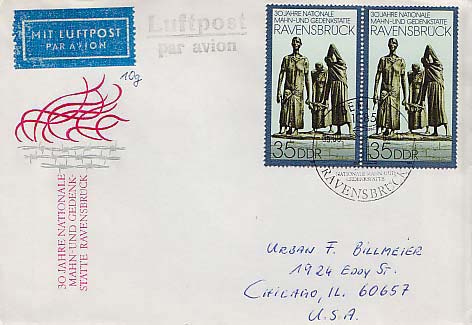 MIT LUFTPOST
PAR AVION
Luftpost
par avion
10g
30 JAHRE NATIONALE
MAHN-UND GEDENKSTÄTTE
RAVENSBRÜCK
35 DDR
30 JAHRE NATIONALE
MAHN-UND GEDENKSTÄTTE
RAVENSBRÜCK
35 DDR
NATIONALE MAHN-UND
GEDENKSTÄTTE
RAVENSBRÜCK
30 JAHRE NATIONALE
MAHN-UND GEDENK-
STÄTTE RAVENSBRÜCK
URBAN F. BILLMEIER
1924 EDDY ST.
CHICAGO, IL. 60657
U.S.A.